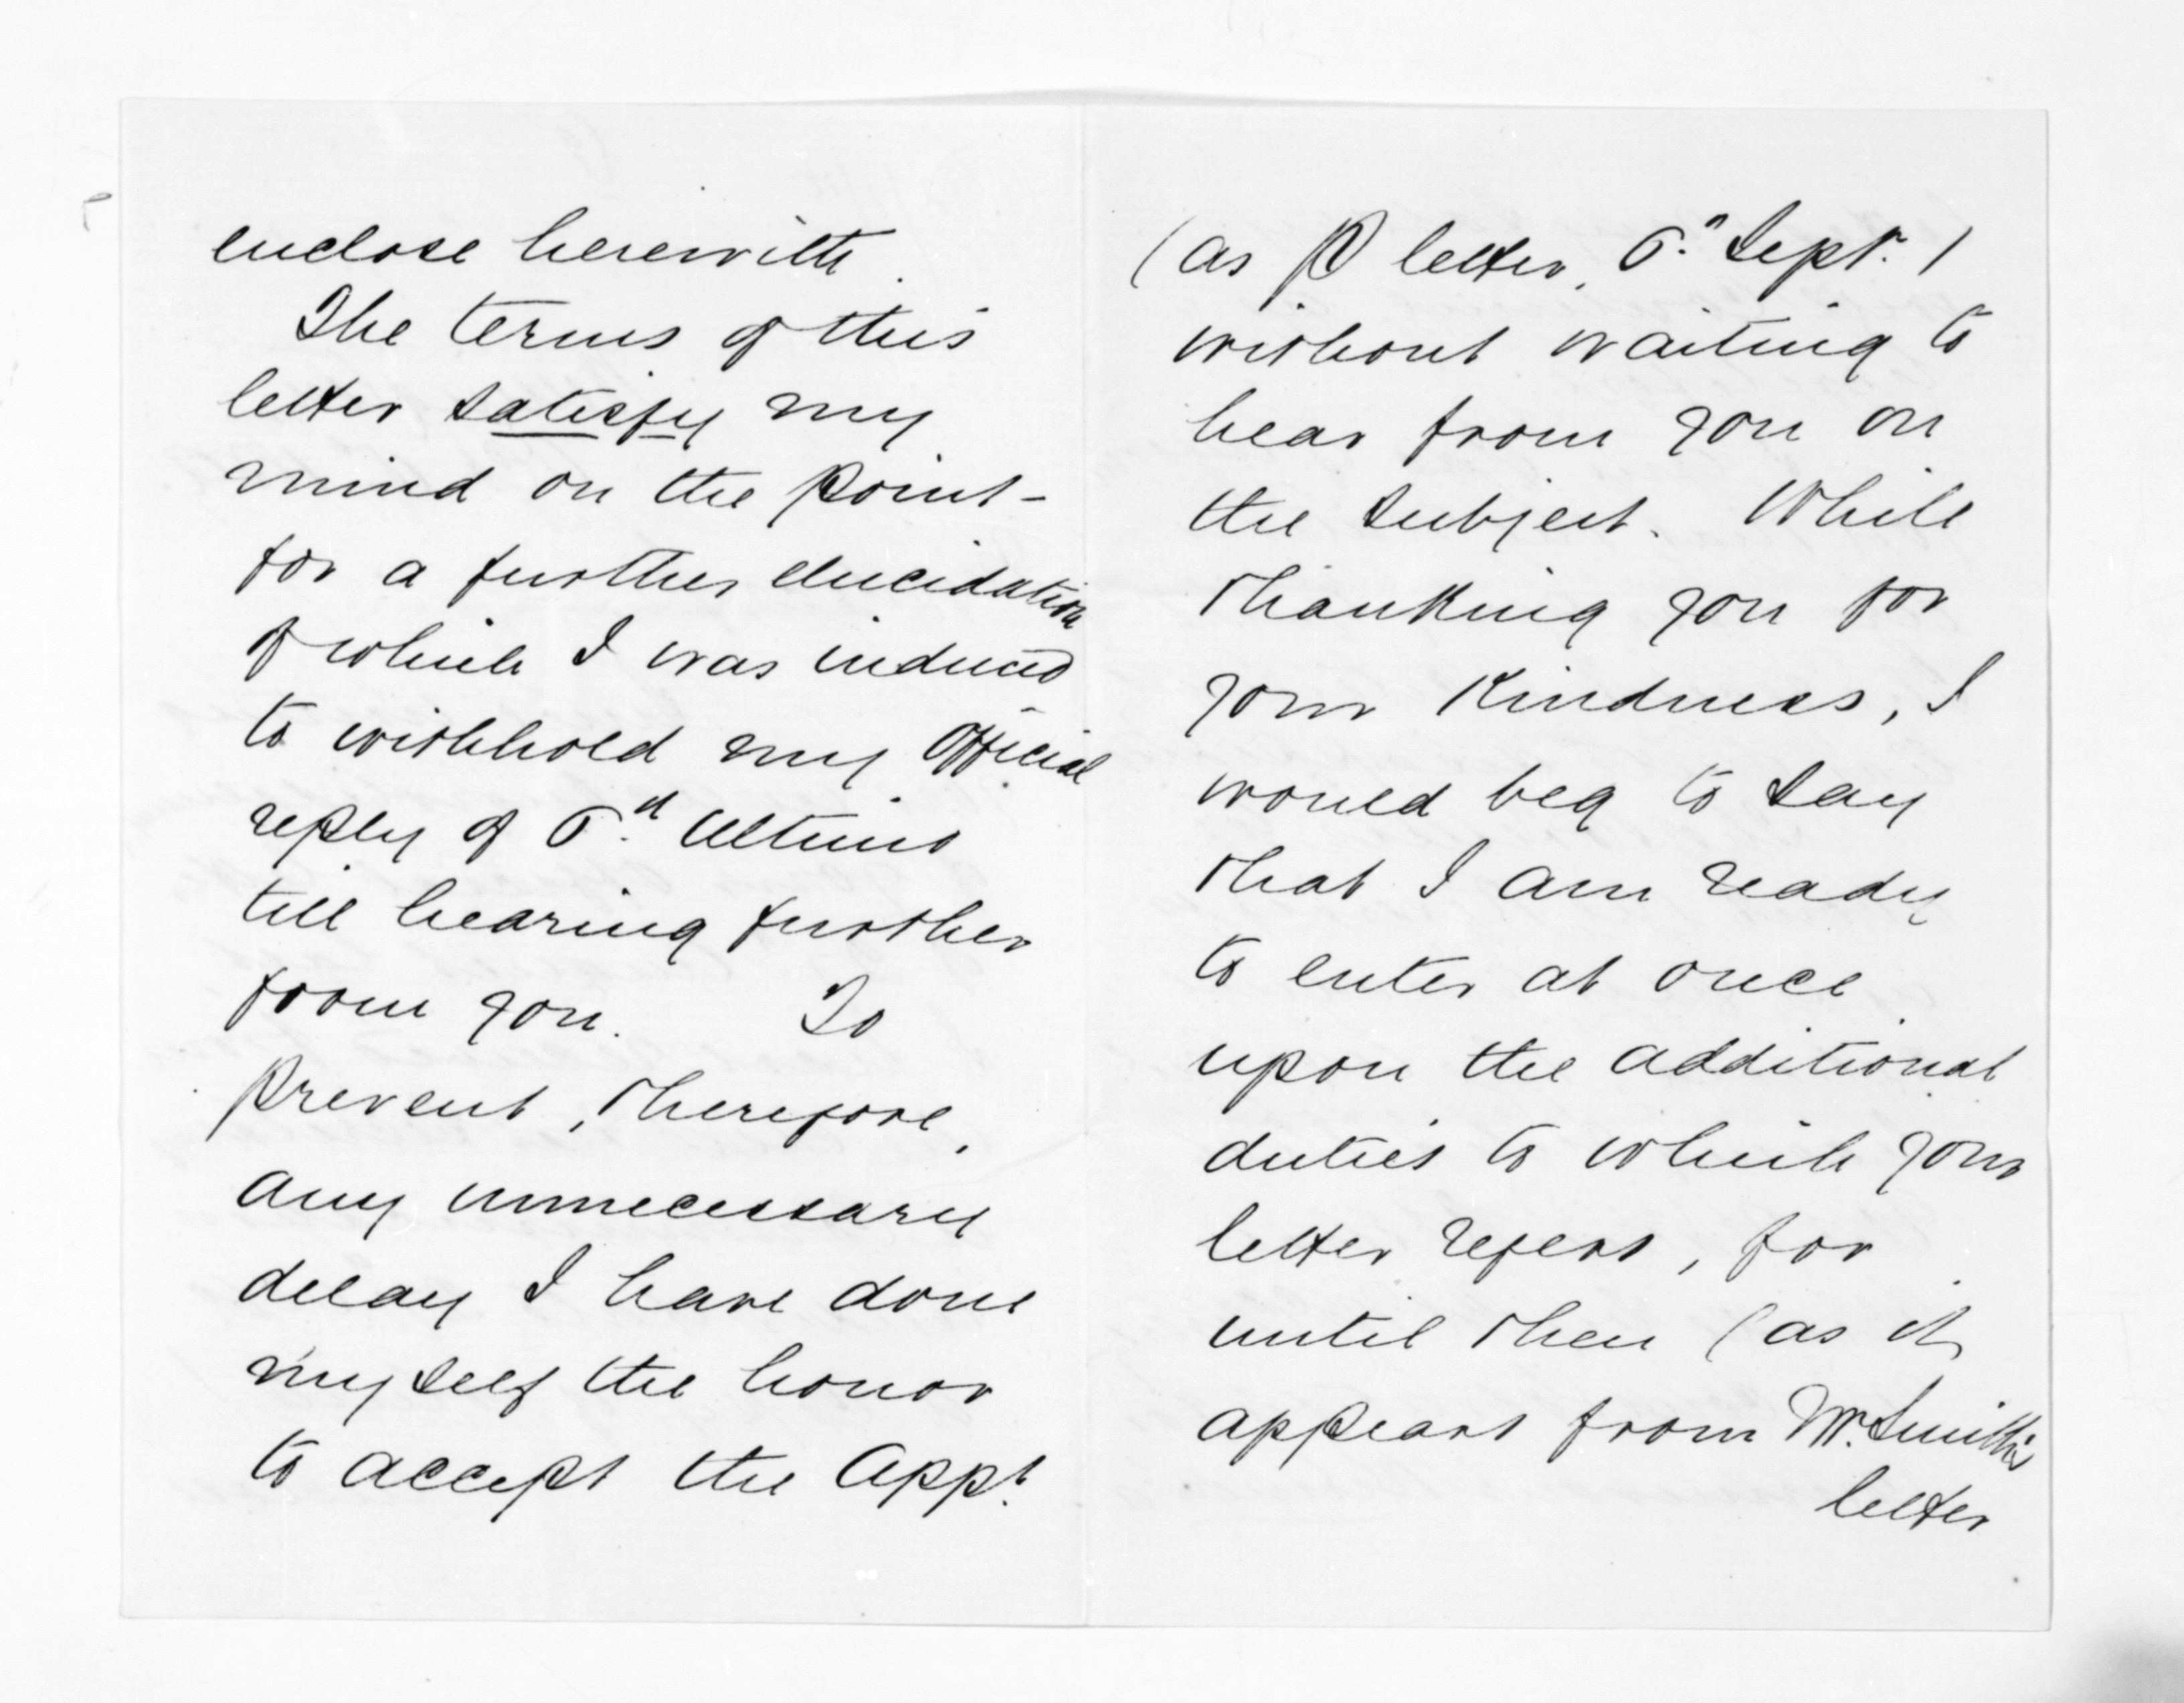 enclose herewith.
The terms of this
letter satisfy my
mind on the point -
for a further elucidation
of which I was induced
to withhold my official
reply of 5th Ultimo
till hearing further
from you. To
prevent, therefore,
any unnecessary
delay I have done
myself the honor
to accept the Appt.
(as P letter, 5th Sept.)
without waiting to
hear from you on
the subject. While
thanking you for
your kindness, I
would beg to say
that I am ready
to enter at once
upon the additional
duties to which your
letter refers, for
until then (as it
appears from Mr. Smith's
letter